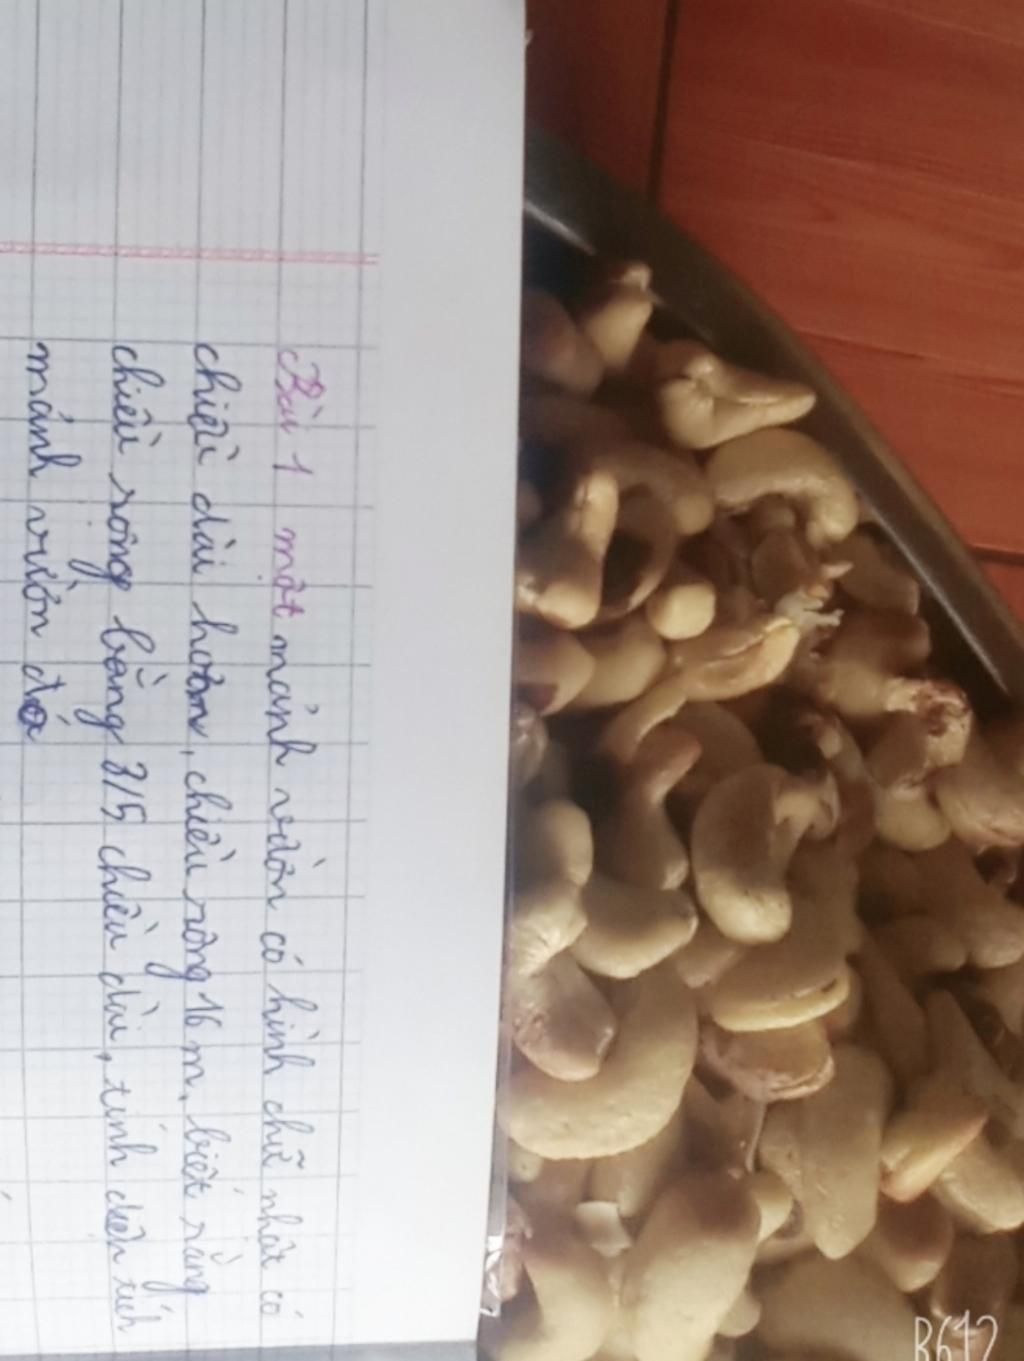 Bài 1 một mảnh vườn có hình chữ nhật có
chiều dài hơn, chiều rộng 16 m, biết rằng
chiều rộng bằng 3/5 chiều dài, tính diện tích
mảnh vườn đó
B612